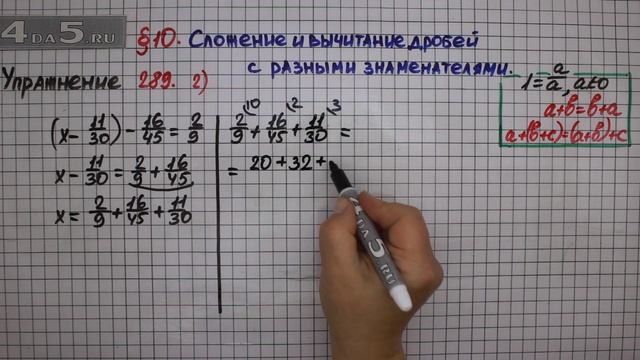 4DA5.RU
§10. Сложение и вычитание дробей
с разными знаменателями.
Упражнение 289. 2)
1 = a/a, a≠0
a+b=b+a
a+(b+c)=(a+b)+c
(x - 11/30) - 16/45 = 2/9
x - 11/30 = 2/9 + 16/45
x = 2/9 + 16/45 + 11/30
10 2 3
2/9 + 16/45 + 11/30 =
= 20 + 32 +
4DA5